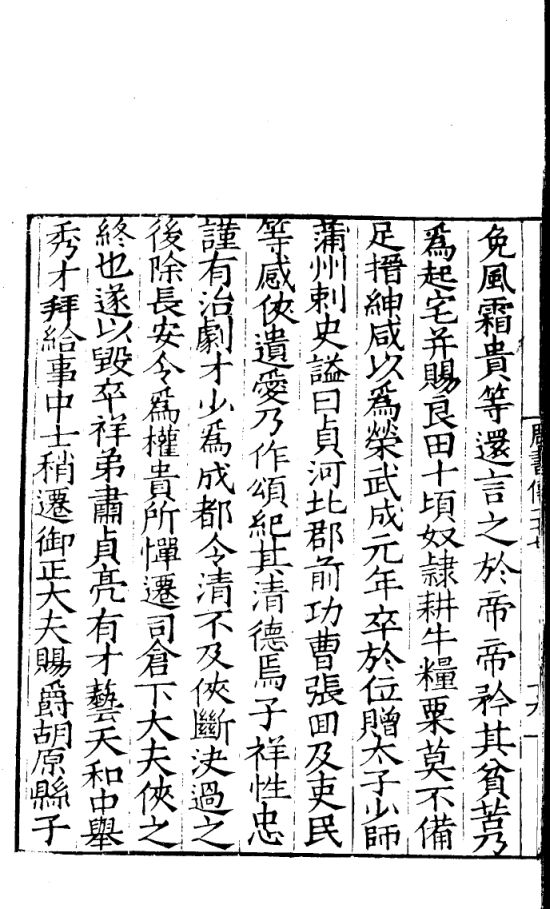 免風霜貴等還言之於帝帝矜其貧苦乃
爲起宅并賜良田十頃奴隸耕牛糧粟莫不備
足搢紳咸以爲榮武成元年卒於位贈太子少師
蒲州刺史謚曰貞河北郡前功曹張回及吏民
等感俠遺愛乃作頌紀其清德焉子祥性忠
謹有治劇才少爲成都令清不及俠斷決過之
後除長安令爲權貴所憚遷司倉下大夫俠之
終也遂以毀卒祥弟肅貞亮有才藝天和中舉
秀才拜給事中士稍遷御正大夫賜爵胡原縣子